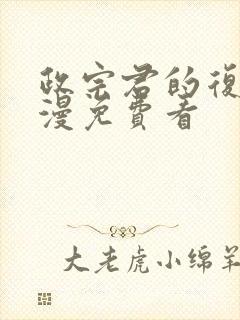 政宗君的復
漫免費看
大老虎小绵羊